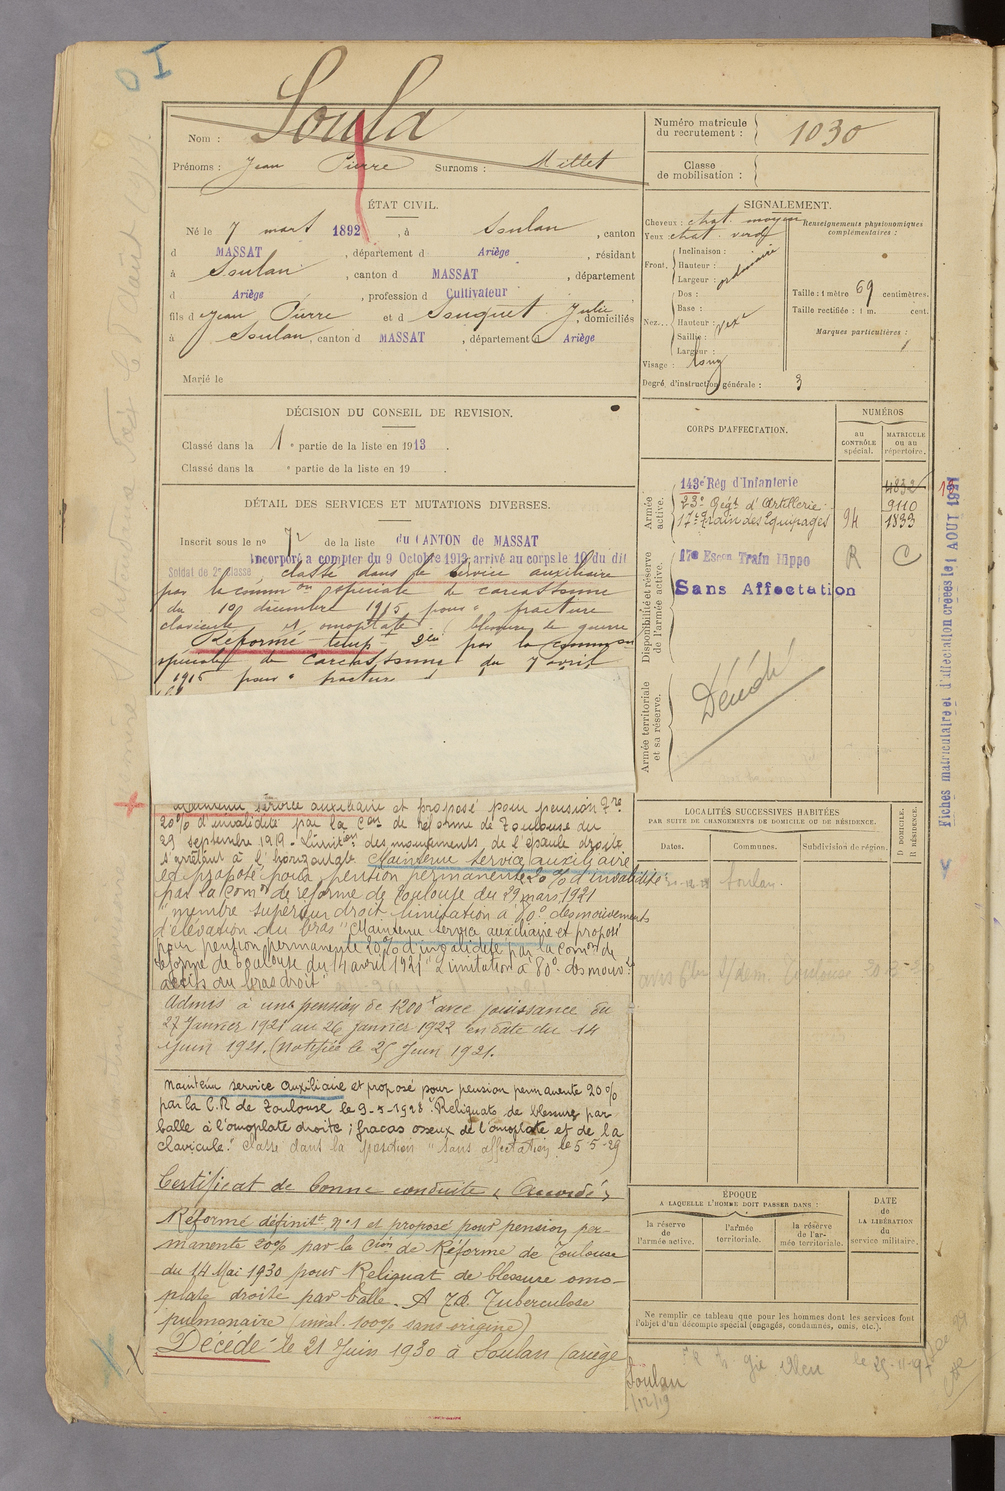 Soula
Nom :
Prénoms : Jean Pierre Surnoms : Millet
Numéro matricule
du recrutement : 1030
Classe
de mobilisation :
ÉTAT CIVIL.
Né le 7 mars 1892, à Soulan, canton
d MASSAT, département d Ariège, résidant
à Soulan, canton d MASSAT, département
d Ariège, profession d Cultivateur
fils d Jean Pierre et d Souquet Julie, domiciliés
à Soulan, canton d MASSAT, département d Ariège
Marié le
SIGNALEMENT.
Cheveux : chat. moyen
Yeux chat. verd
Front, Inclinaison :
Hauteur :
Largeur : ordinaire
Nez... Dos :
Base :
Hauteur :
Saillie :
Largeur :
Visage : long
Renseignements physionomiques
complémentaires :
Taille : 1 mètre 69 centimètres.
Taille rectifiée : 1 m. cent.
Marques particulières :
Degré d'instruction générale : 3
DÉCISION DU CONSEIL DE REVISION.
Classé dans la 1e partie de la liste en 1913.
Classé dans la e partie de la liste en 19
CORPS D'AFFECTATION.
NUMÉROS
au
CONTRÔLE
spécial.
MATRICULE
ou au
répertoire.
Armée
active.
143e Rég d'Infanterie 4832
23e Régt d'Artillerie 9110
17e Train des Equipages 94 1833
Disponibilité et réserve
de l'armée active.
17e Escon Train Hippo R C
Sans Affectation
Armée territoriale
et sa réserve.
Décédé
Fiches matriculaire et d'affectation créées le 1 AOUT 1921
DÉTAIL DES SERVICES ET MUTATIONS DIVERSES.
Inscrit sous le no 72 de la liste du CANTON de MASSAT
Incorporé à compter du 9 Octobre 1913 arrivé au corps le 10 du dit
Soldat de 2e classe classé dans le service auxiliaire
par la common spéciale de carcassonne
du 10 décembre 1915 pour "fracture
clavicule et omoplate" (blessure de guerre
Réformé tempt par la common
spéciale de Carcassonne du 7 avril
1916 pour "fracture
Maintenu service auxiliaire et proposé pour pension
20% d'invalidité par la Con de réforme de Toulouse du
29 septembre 1919. Limiton des mouvements de l'épaule droite
s'arrêtant à l'horizontale. Maintenu service auxiliaire
et proposé pour pension permanente 20% d'invalidité
par la Comon de réforme de Toulouse du 29 mars 1921
"membre supérieur droit limitation à 80° des mouvements
d'élévation du bras" Maintenu service auxiliaire et proposé
pour pension permanente 20% d'invalidité par la Comon de
réforme de Toulouse du 14 avril 1921 "Limitation à 80° des mouvts
actifs du bras droit"
Admis à une pension de 1200f avec jouissance du
27 Janvier 1921 au 26 janvier 1922 en date du 14
Juin 1921. (Notifiée le 25 Juin 1921.
Maintenu service auxiliaire et proposé pour pension permanente 20%
par la C.R de Toulouse le 9-5-1928 "Reliquats de blessure par
balle à l'omoplate droite ; fracas osseux de l'omoplate et de la
clavicule." Classé dans la position "sans affectation" le 5-5-29
Certificat de bonne conduite "Accordé"
Réformé définitt No 1 et proposé pour pension per-
manente 20% par la Cion de Réforme de Toulouse
du 14 Mai 1930 pour Reliquat de blessure omo-
plate droite par balle. Tuberculose
pulmonaire (inval. 100% sans origine)
Décédé le 21 Juin 1930 à Soulan (ariège
LOCALITÉS SUCCESSIVES HABITÉES
PAR SUITE DE CHANGEMENTS DE DOMICILE OU DE RÉSIDENCE.
Dates. Communes. Subdivision de région. D DOMICILE. R RÉSIDENCE.
Soulan.
ÉPOQUE
A LAQUELLE L'HOMME DOIT PASSER DANS :
la réserve
de
l'armée active.
l'armée
territoriale.
la réserve
de l'ar-
mée territoriale.
DATE
de
LA LIBÉRATION
du
service militaire.
Ne remplir ce tableau que pour les hommes dont les services font
l'objet d'un décompte spécial (engagés, condamnés, omis, etc.).
Soulan